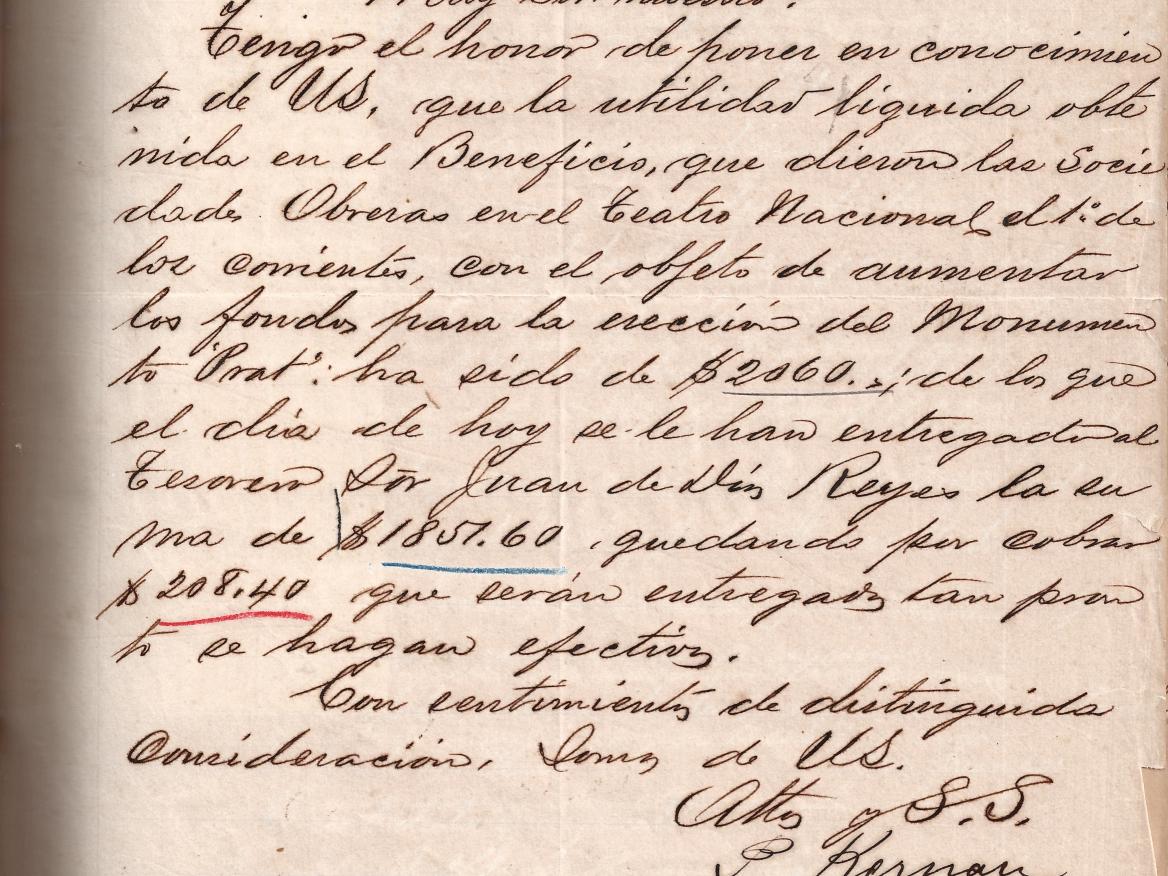 Muy Sor nuestro:
Tengo el honor de poner en conocimien
to de US, que la utilidad líquida obte
nida en el Beneficio, que dieron las Socie
dades Obreras en el Teatro Nacional el 1º de
los corrientes, con el objeto de aumentar
los fondos para la erección del Monumen
to "Prat": ha sido de $2060.-; de los que
el día de hoy se le han entregado al
Tesorero Sor Juan de Dios Reyes la su
ma de $1851.60, quedando por cobrar
$208.40 que serán entregados tan pron
to se hagan efectivos.
Con sentimientos de distinguida
Consideración, Somos de US.
Attos y S.S.
P Kernan